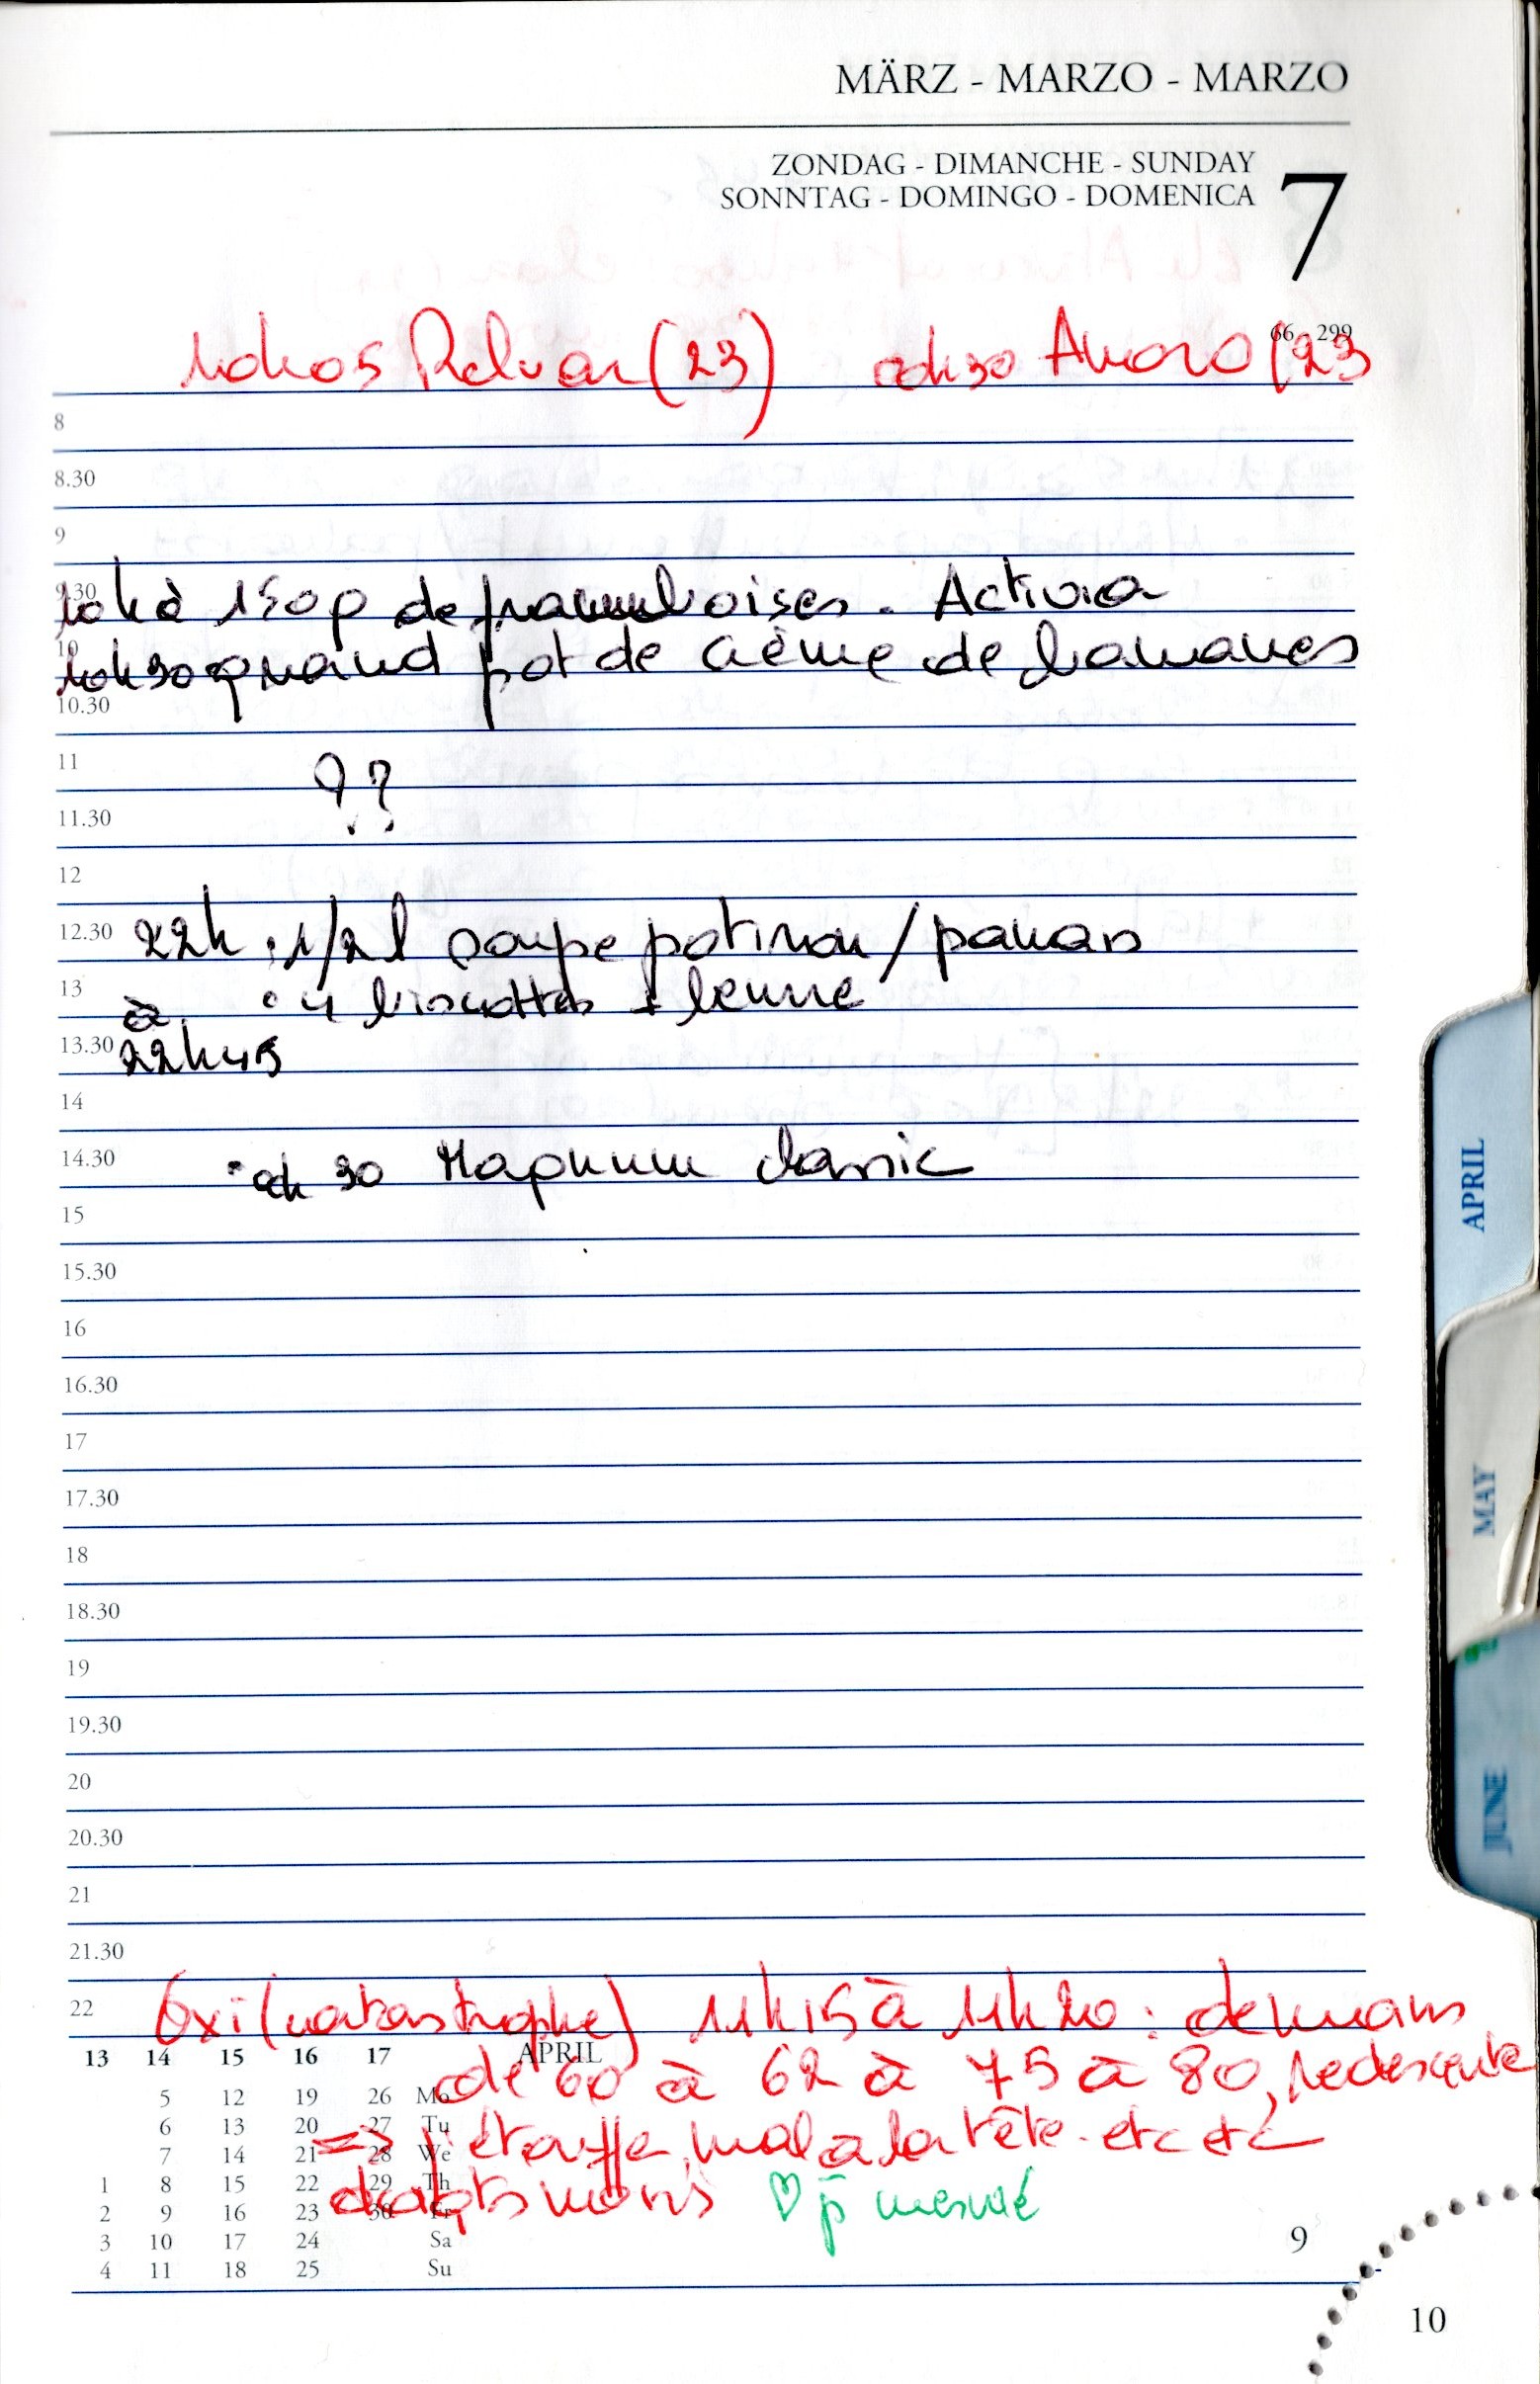 MÄRZ - MARZO - MARZO
ZONDAG - DIMANCHE - SUNDAY
SONNTAG - DOMINGO - DOMENICA
7
66 - 299
10h05 Relvar (23) 0h30 Amoro (23
8
8.30
9
9.30
10h à 150g de framboises. Activia
10
10h30 grand pot de crème de bananes
10.30
11
??
11.30
12
12.30
22h : 1/2 l soupe potiron / panais
13
à ° 4 biscottes + beurre
13.30
22h45
14
14.30
° 0h30 Magnum classic
15
15.30
16
16.30
17
17.30
18
18.30
19
19.30
20
20.30
21
21.30
22
Oxi (catastrophe) 11h15 à 11h20 :
de 60 à 62 à 75 à 80, redescente
=> j'étouffe, mal à la tête. etc etc
doigts ♡ p̄ mesuré
13 14 15 16 17 APRIL
5 12 19 26 Mo
6 13 20 27 Tu
7 14 21 28 We
1 8 15 22 29 Th
2 9 16 23 30 Fr
3 10 17 24 Sa
4 11 18 25 Su
9
10
APRIL
MAY
JUNE